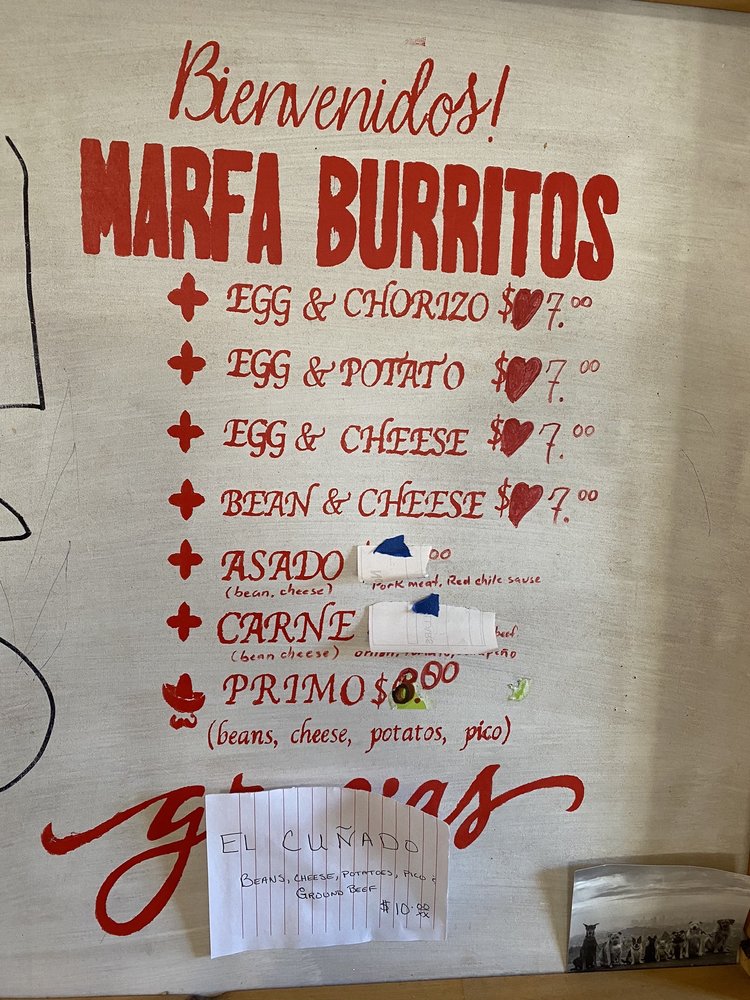 Bienvenidos!
MARFA BURRITOS
EGG & CHORIZO $ 7.00
EGG & POTATO $ 7.00
EGG & CHEESE $ 7.00
BEAN & CHEESE $ 7.00
ASADO 00
(bean, cheese) Pork meat, Red chile sause
CARNE beef
(bean cheese)
PRIMO $8.00
(beans, cheese, potatoes, pico)
EL CUÑADO
BEANS, CHEESE, POTATOES, PICO &
GROUND BEEF
$10.00